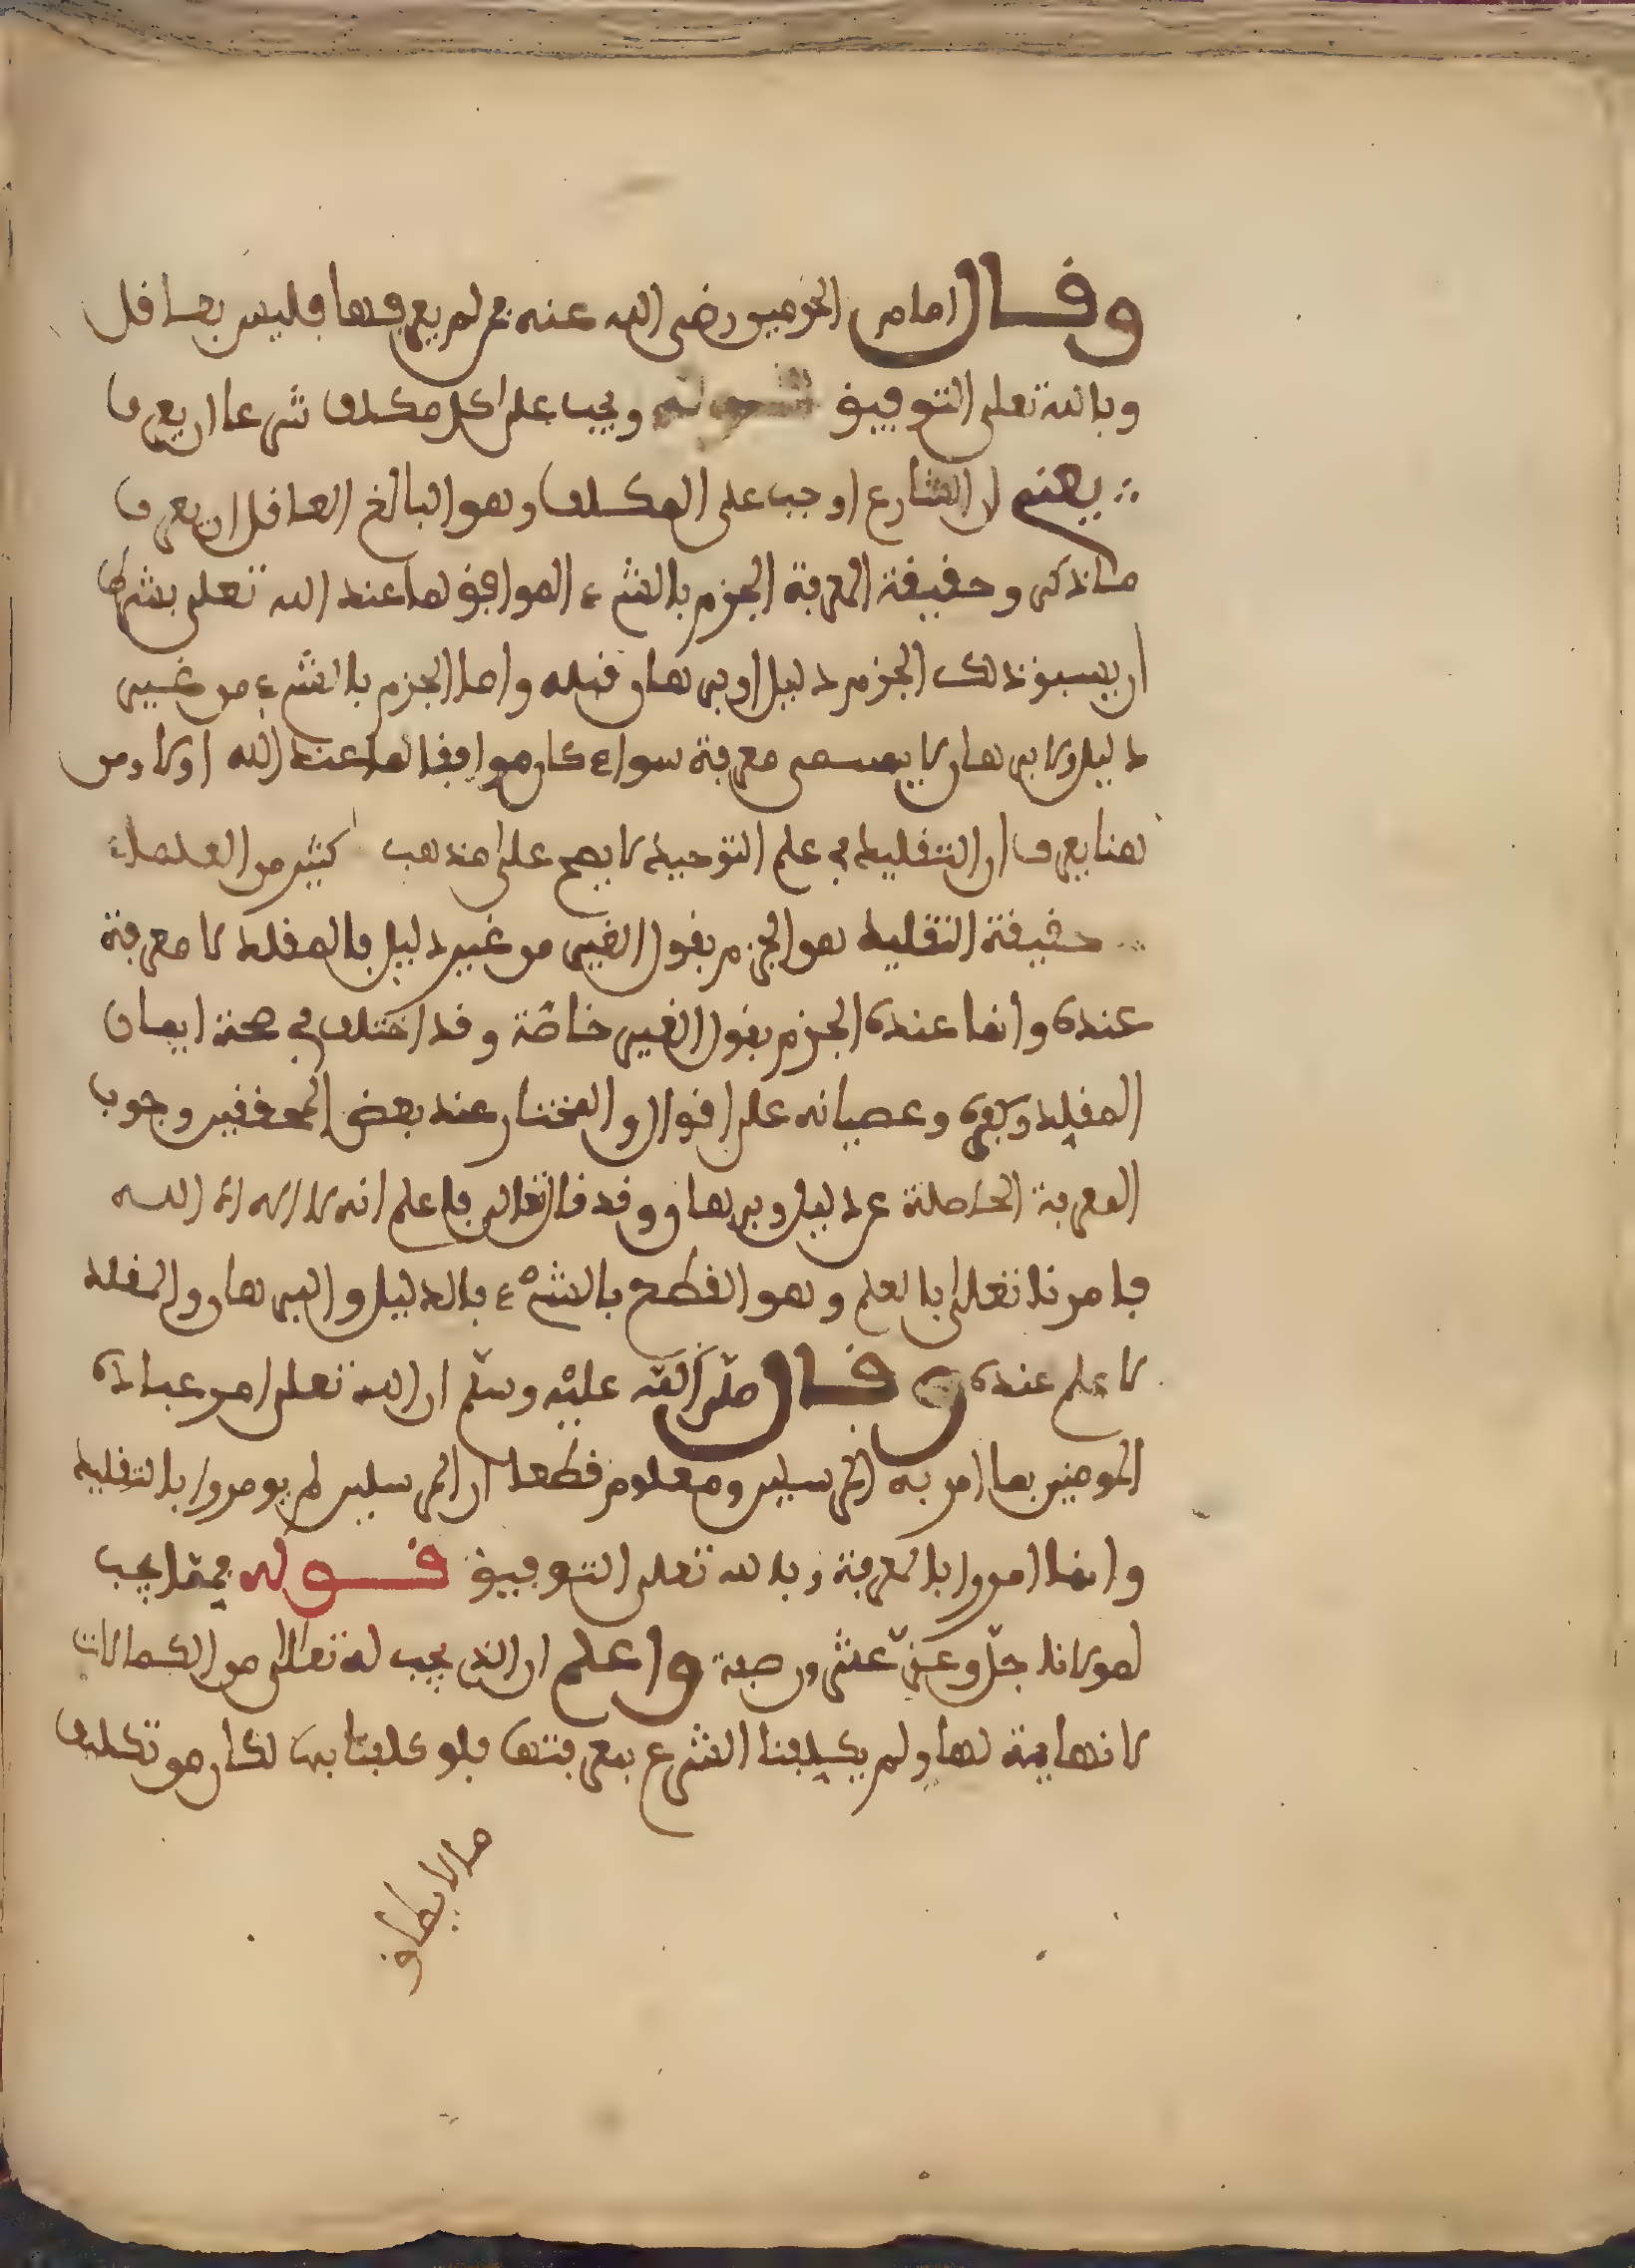 وقال امام الحرمين رضي الله عنه من لم يعرفها فليس بعاقل
وبالله تعلى التوفيق ويجب على كل مكلف شرعا ان يعرف
يعني ان الشارع اوجب على المكلف وهو البالغ العاقل ان يعرف
ما ذكر وحقيقة المعرفة الجزم بالشيء الموافق لما عند الله تعلى بشرط
ان يسبق ذلك الجزم دليل او برهان قبله واما الجزم بالشيء من غير
دليل ولا برهان لا يسمى معرفة سواء كان موافقا لما عند الله او لا ومن
هنا يعرف ان التقليد في علم التوحيد لا يصح على مذهب كثير من العلماء
حقيقة التقليد هو الجزم بقول الغير من غير دليل فالمقلد لا معرفة
عنده وانما عنده الجزم بقول الغير خاصّة وقد اختلف في صحة ايمان
المقلد وكفره وعصيانه على اقوال والمختار عند بعض المحققين وجوب
المعرفة الحاصلة عن دليل وبرهان وقد قال تعالى فاعلم انه لا اله الا الله
فامرنا تعلى بالعلم وهو القطع بالشيء بالدليل والبرهان والمقلد
لا علم عنده وقال صلّى الله عليْه وسلّم ان الله تعلى امر عباده
المومنين بما امر به المرسلين ومعلوم قطعا ان المرسلين لم يومروا بالتقليد
وانما امروا بالمعرفة وبالله تعلى التوفيق قوله فممّا يجب
لمولانا جلّ وعزّ عشرون صفة واعلم ان الذي يجب له تعالى من الكمالات
لا نهاية لها ولم يكلفنا الشرع بمعرفتها فلو كلفنا بها لكان هو تكليف
ما لا يطاق